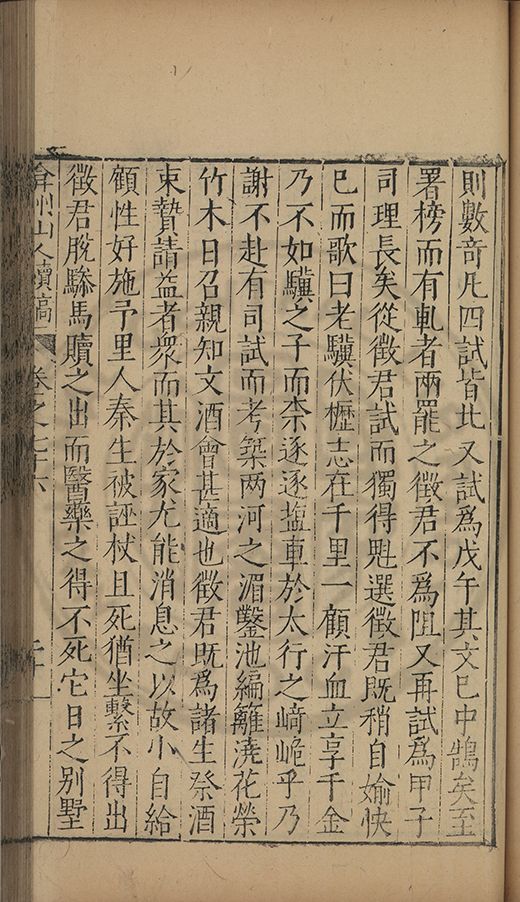 則數奇凡四試皆北又試爲戊午其文巳中鵠矣至
署榜而有軋者兩罷之徵君不爲阻又再試爲甲子
司理長矣從徵君試而獨得𩲃選徵君既稍自媮快
巳而歌曰老驥伏櫪志在千里一顧汗血立享千金
乃不如驥之子而柰逐逐塩車於太行之﨑峗乎乃
謝不赴有司試而考築两河之湄鑿池編籬澆花榮
竹木日召親知文酒會甚適也徵君既爲諸生祭酒
束贄請益者衆而其於家尤能消息之以故小自給
顧性好施予里人秦生被誣杖且死猶坐繫不得出
徵君脫驂馬贖之出而醫藥之得不死它日之别墅
弇州山人續稿 卷之七十六